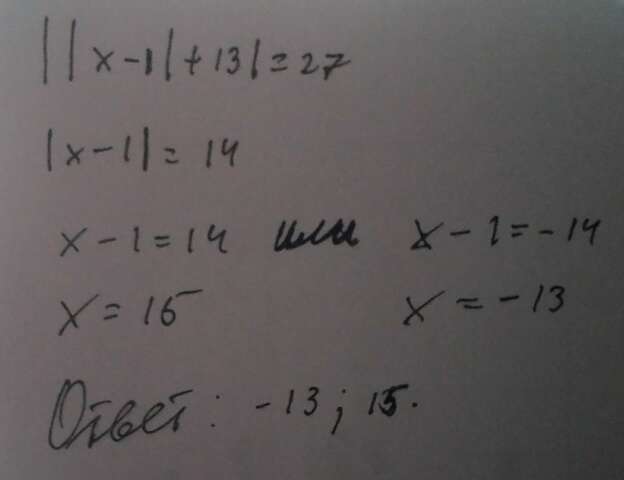 ||x-1|+13|=27
|x-1|=14
x-1=14 или x-1=-14
x=15 x=-13
Ответ: -13; 15.